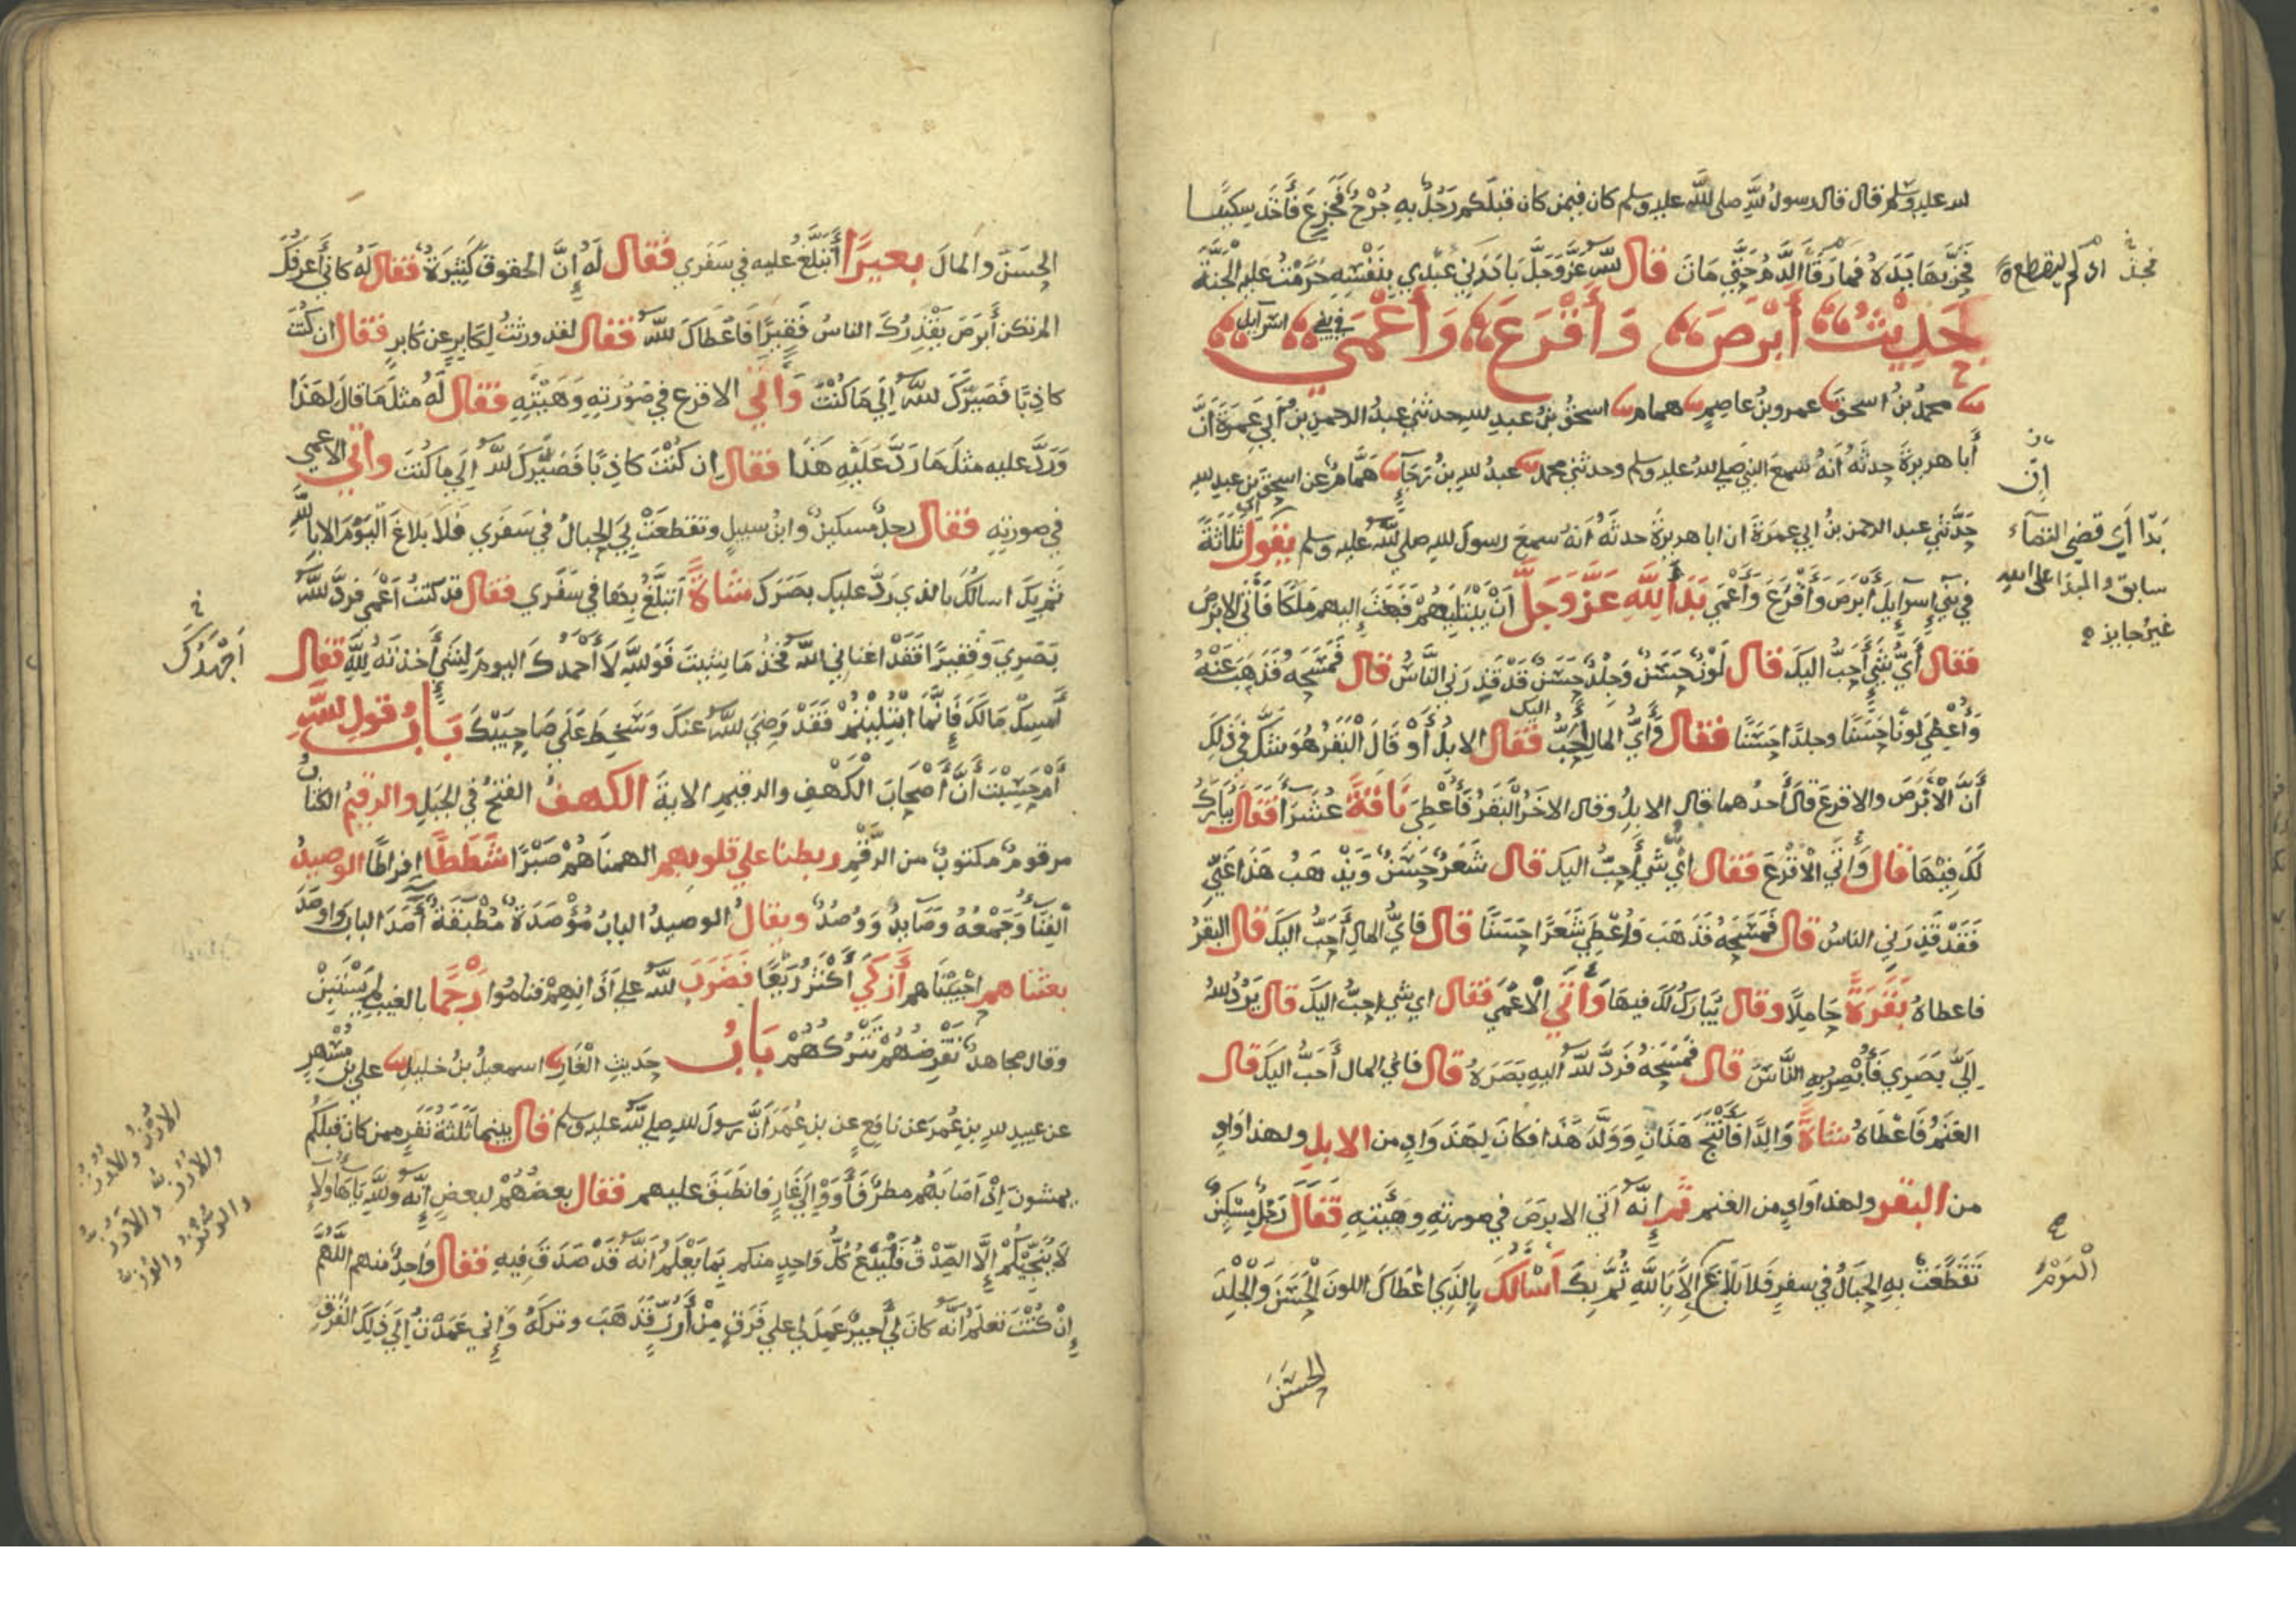 لله عليه وسلم قال قال رسول الله صلى الله عليه وسلم كان فيمن كان قبلكم رجل به جرح فجزع فأخذ سكينا
فحز بها يده فما رقأ الدم حتى مات قال الله عز وجل بادرني عبدي بنفسه حرمت عليه الجنة
اي لم ينقطع
حديث أبرص وأقرع وأعمى في بني اسرائيل
محمد بن اسحق عمرو بن عاصم همام اسحق بن عبد الله حدثني عبد الرحمن بن أبي عمرة أن
أبا هريرة حدثه أنه سمع النبي صلى الله عليه وسلم وحدثني محمد عبد الله بن رجاء همام عن اسحق بن عبد الله
حدثني عبد الرحمن بن ابي عمرة ان ابا هريرة حدثه أنه سمع رسول الله صلى الله عليه وسلم يقول ثلاثة
في بني إسرايل أبرص وأقرع وأعمى بدا لله عز وجل أن يبتليهم فبعث إليهم ملكا فأتى الابرص
فقال أي شيء أحب اليك قال لون حسن وجلد حسن قد قذرني الناس قال فمسحه فذهب عنه
وأعطي لونا حسنا وجلدا حسنا فقال وأي المال أحب اليك فقال الابل أو قال البقر هو شك في ذلك
أن الأبرص والاقرع قال أحدهما قال الابل وقال الاخر البقر فأعطي ناقة عشرا فقال يبارك
لك فيها قال وأتى الأقرع فقال اي شيء أحب اليك قال شعر حسن ويذهب هذا عني
فقد قذرني الناس قال فمسحه فذهب وأعطي شعرا حسنا قال فاي المال أحب اليك قال البقر
فاعطاه بقرة حاملا وقال يبارك لك فيها وأتى الأعمى فقال اي شيء احب اليك قال يرد الله
إلي بصري فأبصر به الناس قال فمسحه فرد الله اليه بصره قال فاي المال أحب اليك قال
الغنم فاعطاه شاة والدا فأنتج هذان وولد هذا فكان لهذا واد من الابل ولهذا واد
من البقر ولهذا واد من الغنم ثم إنه أتى الابرص في صورته وهيئته فقال رجل مسكين
تقطعت به الحبال في سفره فلا بلاغ إلا بالله ثم بك أسألك بالذي اعطاك اللون الحسن والجلد
الحسن
ان
بدا أي قضى القضاء
سابق والبدا على الله
غير جايز
اليوم
الحسن والمال بعيرا أتبلغ عليه في سفري فقال له إن الحقوق كثيرة فقال له كاني أعرفك
الم تكن أبرص يقذرك الناس فقيرا فأعطاك الله فقال لقد ورثت لكابر عن كابر فقال ان كنت
كاذبا فصيرك الله إلى ما كنت وأتى الاقرع في صورته وهيئته فقال له مثل ما قال لهذا
ورد عليه مثل ما رد عليه هذا فقال ان كنت كاذبا فصيرك الله الى ما كنت واتى الاعمى
في صورته فقال رجل مسكين وابن سبيل وتقطعت بي الحبال في سفري فلا بلاغ اليوم الا بالله
ثم بك اسالك بالذي رد عليك بصرك شاة أتبلغ بها في سفري فقال قد كنت أعمى فرد الله
بصري وفقيرا فقد اغناني الله فخذ ما شيت فوالله لا أحمدك اليوم لشيء أخذته لله فقال
أمسك مالك فإنما ابتليتم فقد رضي الله عنك وسخط على صاحبيك باب قول الله
أم حسبت أن أصحاب الكهف والرقيم الاية الكهف الفتح في الجبل والرقيم الكتاب
مرقوم مكتوب من الرقم ربطنا على قلوبهم الهمناهم صبرا شططا إفراطا الوصيد
الفناء وجمعه وصايد ووصد ويقال الوصيد الباب مؤصدة مطبقة أصد الباب واوصد
بعثناهم احييناهم أزكى أكثر ريعا فضرب الله على اذانهم فناموا رجما بالغيب لم يستبن
وقال مجاهد تقرضهم تتركهم باب حديث الغار اسمعيل بن خليل علي بن مسهر
عن عبيد الله بن عمر عن نافع عن بن عمر أن رسول الله صلى الله عليه وسلم قال بينما ثلثة نفر ممن كان قبلكم
يمشون إذ اصابهم مطر فأووا إلى غار فانطبق عليهم فقال بعضهم لبعض إنه والله يا هاولاء
لا ينجيكم إلا الصدق فليدع كل واحد منكم بما يعلم انه قد صدق فيه فقال واحد منهم اللهم
إن كنت تعلم أنه كان لي أجير عمل لي على فرق من أرز فذهب وتركه وإني عمدت إلى ذلك الفرق
أجهدك